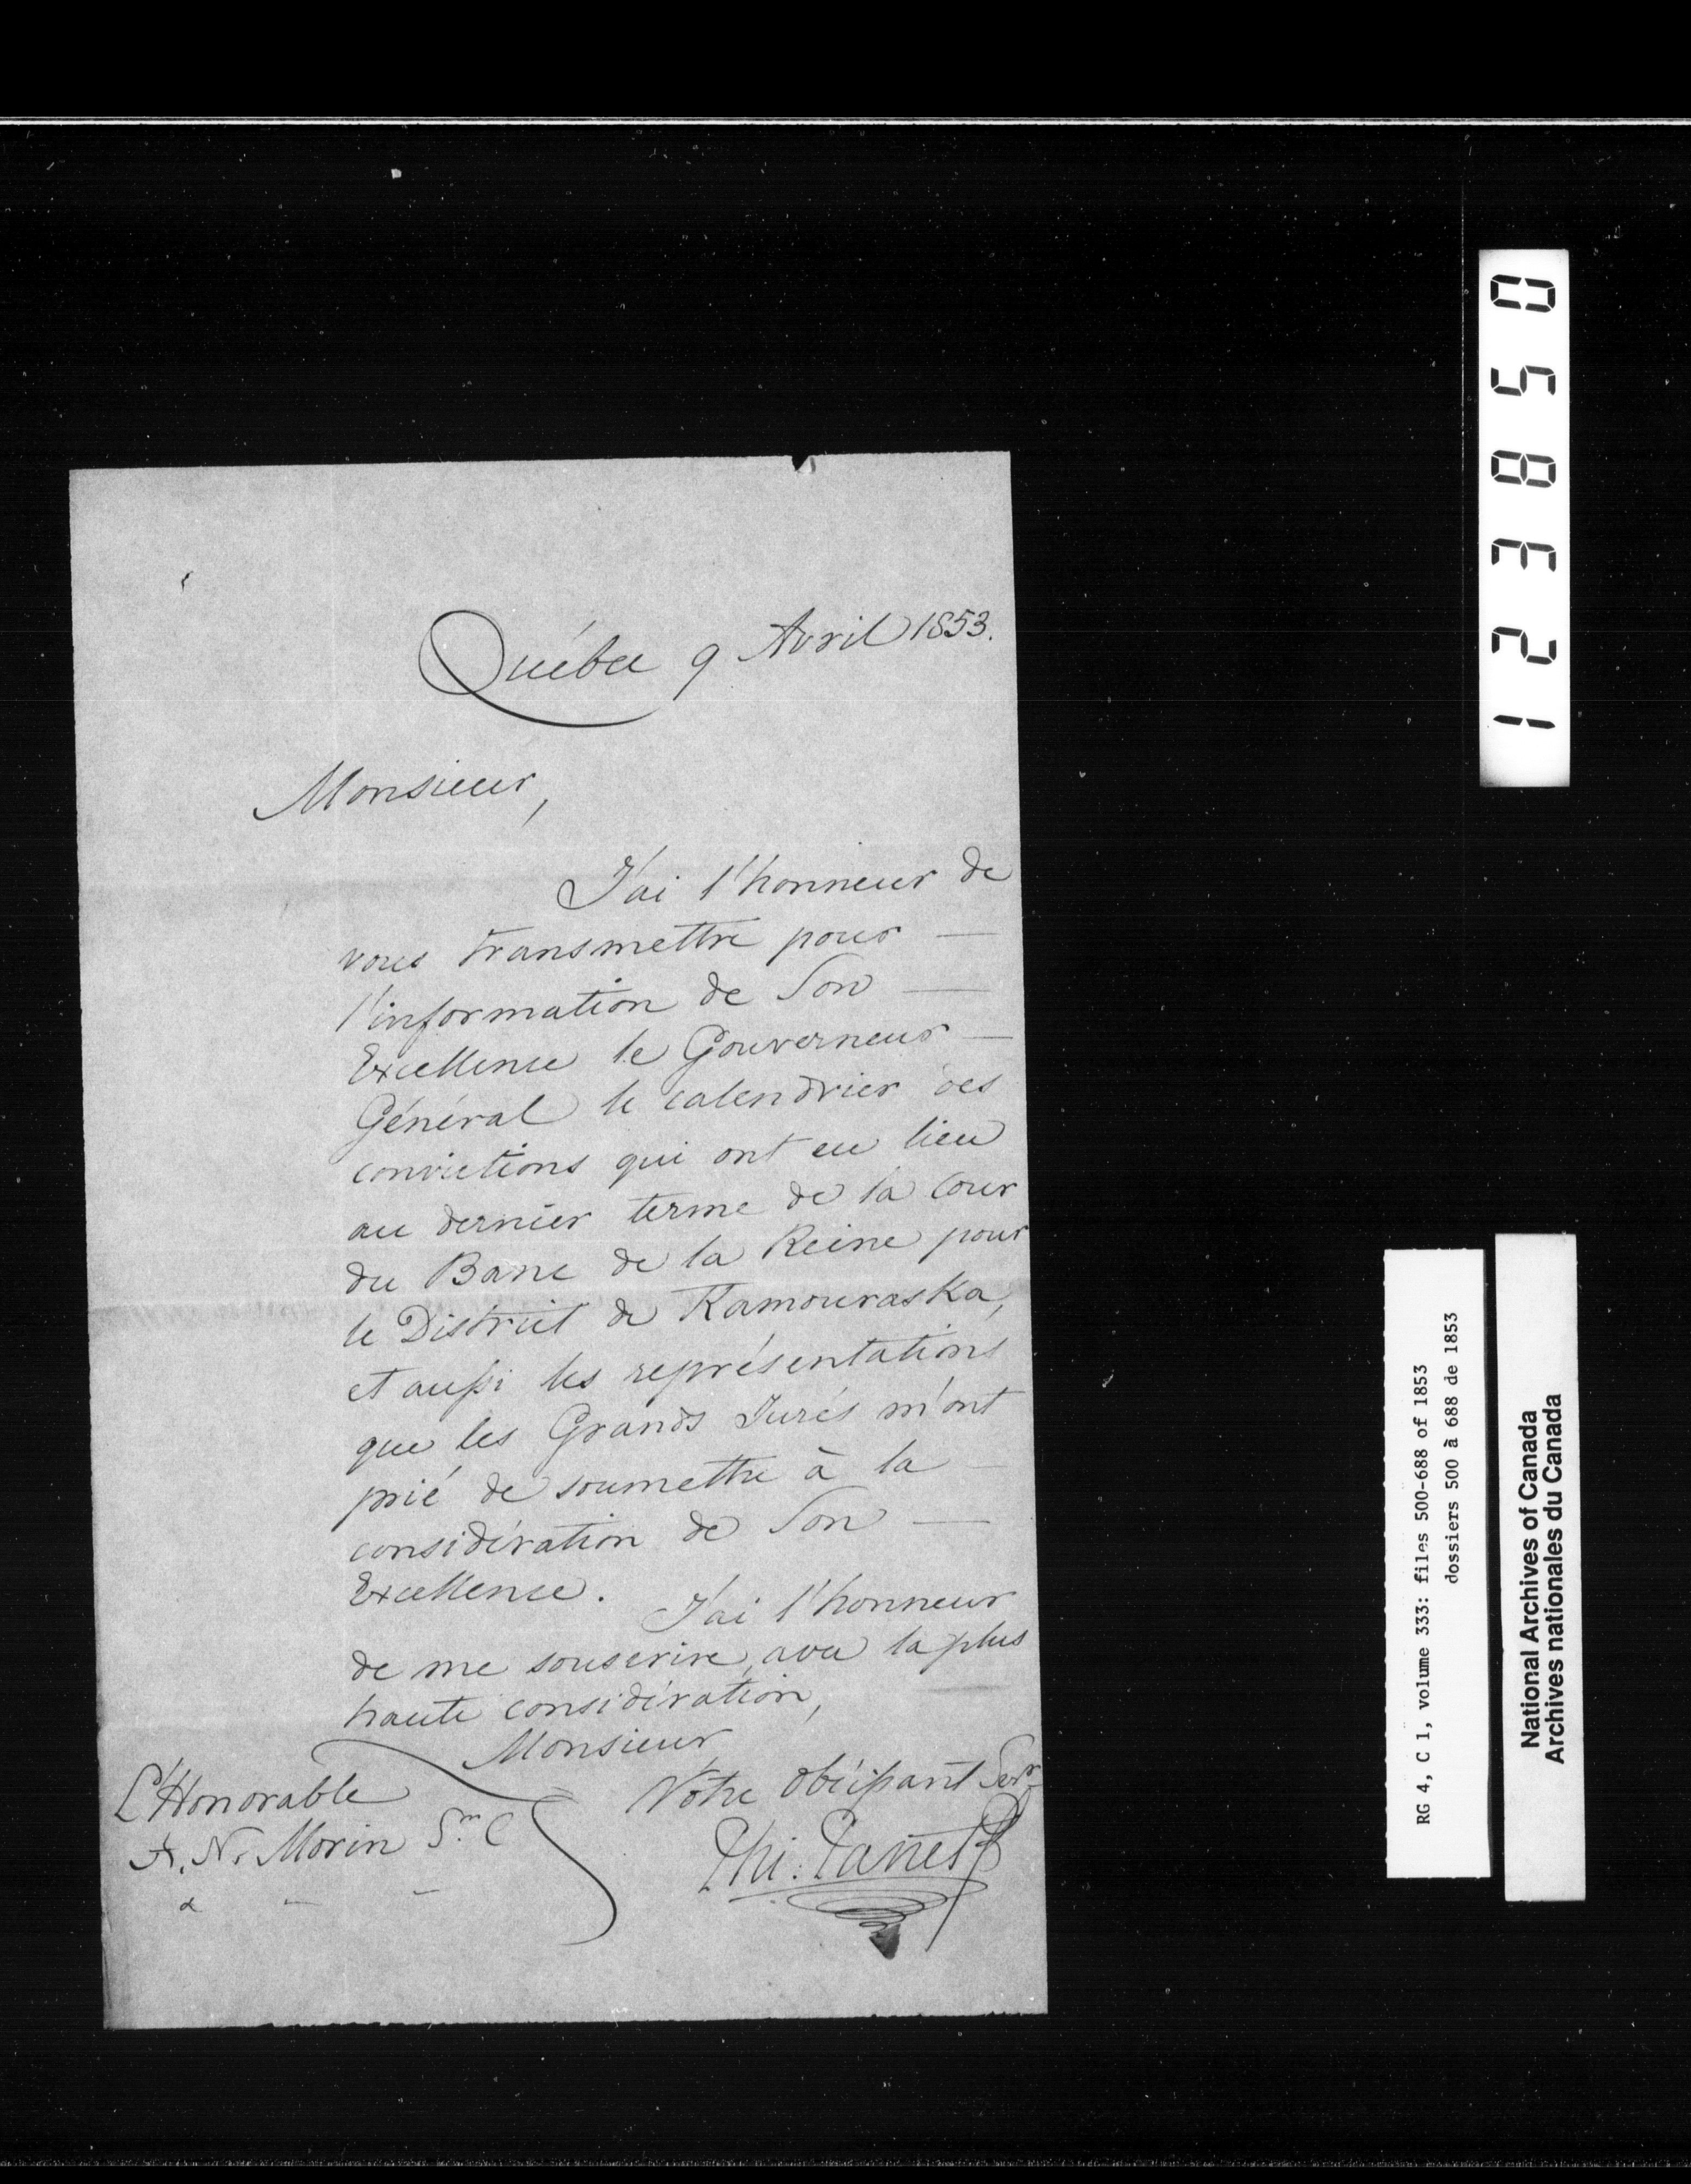 Québec 9 Avril 1853.
Monsieur,
J'ai l'honneur de
vous transmettre pour —
l'information de Son —
Excellence le Gouverneur —
Général le calendrier des
convictions qui ont eu lieu
au dernier terme de la Cour
du Banc de la Reine pour
le District de Kamouraska,
et aussi les représentations
que les Grands Jurés m'ont
prié de soumettre à la —
considération de Son —
Excellence. J'ai l'honneur
de me souscrire, avec la plus
haute considération,
Monsieur
Votre obéissant Servr
Phi: Panet
L'Honorable
A. N. Morin
1 2 3 8 5 0
RG 4, C 1, volume 333: files 500-688 of 1853
dossiers 500 à 688 de 1853
National Archives of Canada
Archives nationales du Canada